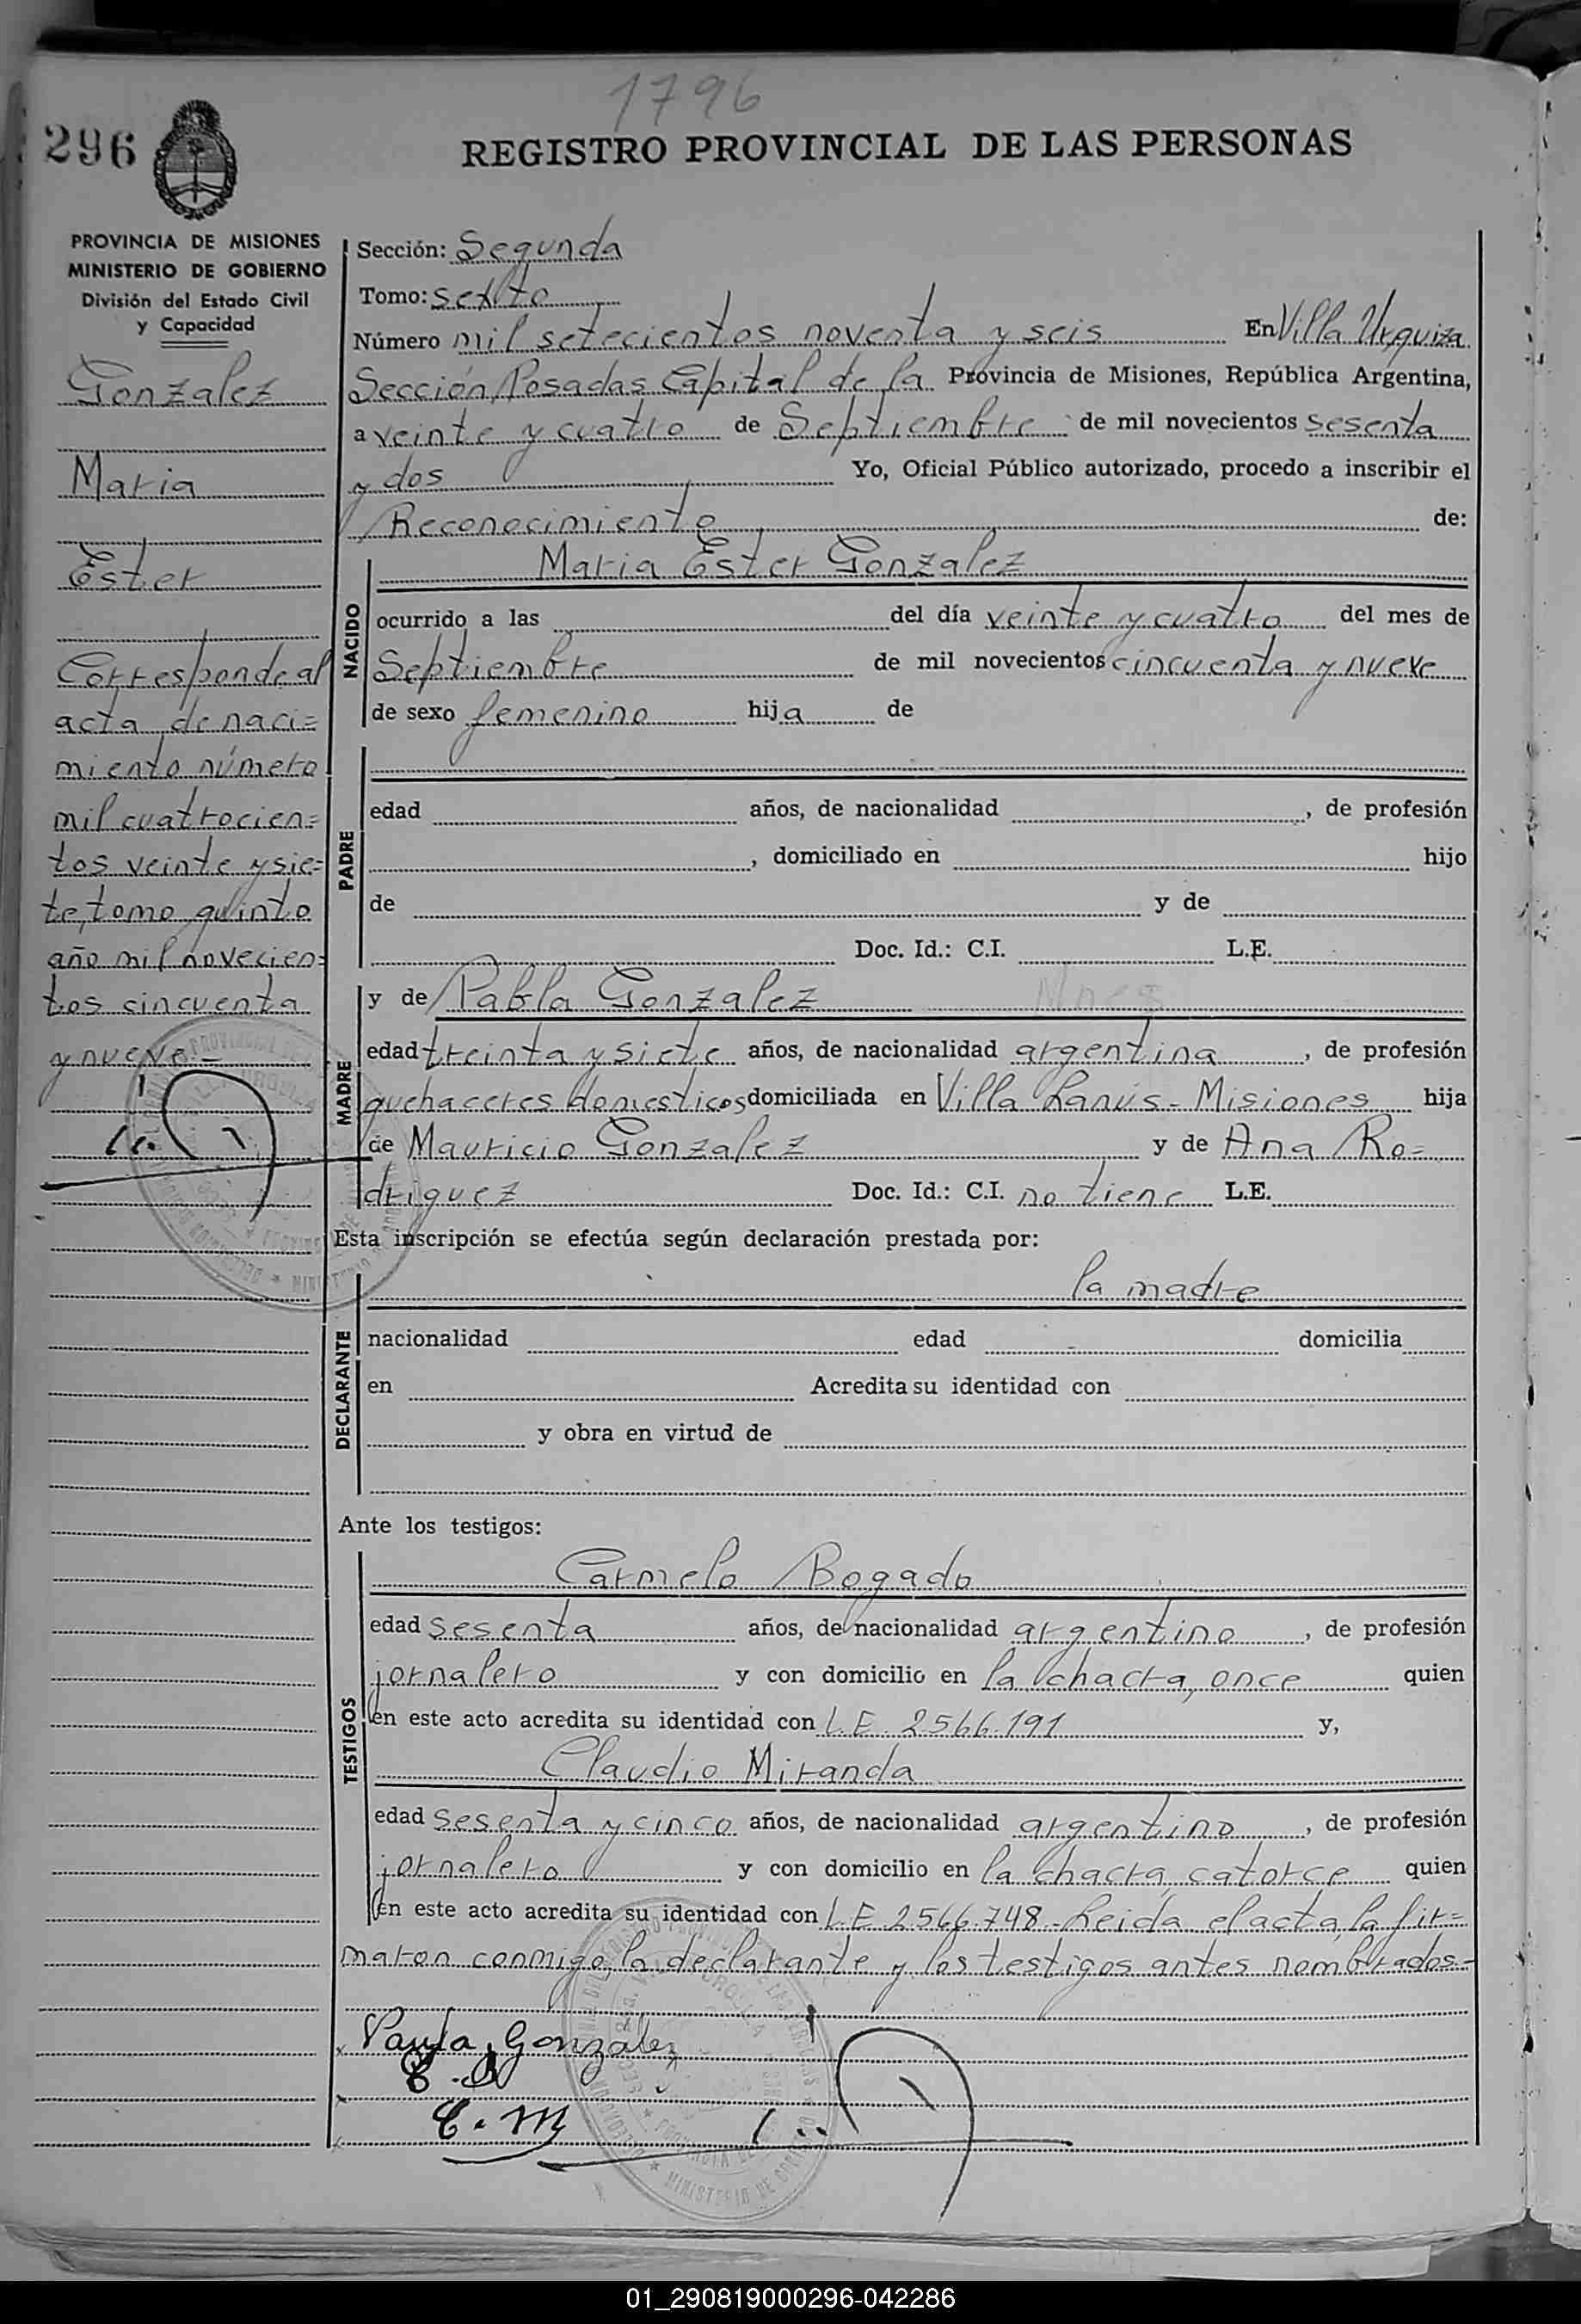 1796
296
REGISTRO PROVINCIAL DE LAS PERSONAS
PROVINCIA DE MISIONES
MINISTERIO DE GOBIERNO
División del Estado Civil
y Capacidad
Gonzalez
Maria
Ester
Corresponde al
acta de naci=
miento número
mil cuatrocien=
tos veinte y sie=
te, tomo quinto
año mil novecien=
tos cincuenta
y nueve.-
Sección: Segunda
Tomo: sexto
Número mil setecientos noventa y seis En Villa Urquiza
Sección Posadas Capital de la Provincia de Misiones, República Argentina,
a veinte y cuatro de Septiembre de mil novecientos sesenta
y dos Yo, Oficial Público autorizado, procedo a inscribir el
Reconocimiento de:
NACIDO
Maria Ester Gonzalez
ocurrido a las del día veinte y cuatro del mes de
Septiembre de mil novecientos cincuenta y nueve
de sexo femenino hija de
PADRE
edad años, de nacionalidad , de profesión
, domiciliado en hijo
de y de
Doc. Id.: C.I. L.E.
MADRE
y de Pabla Gonzalez
edad treinta y siete años, de nacionalidad argentina , de profesión
quehaceres domesticos domiciliada en Villa Lanús - Misiones hija
de Mauricio Gonzalez y de Ana Ro=
driguez Doc. Id.: C.I. no tiene L.E.
Esta inscripción se efectúa según declaración prestada por:
la madre
DECLARANTE
nacionalidad edad domicilia
en Acredita su identidad con
y obra en virtud de
Ante los testigos:
TESTIGOS
Carmelo Bogado
edad sesenta años, de nacionalidad argentino , de profesión
jornalero y con domicilio en la chacra once quien
en este acto acredita su identidad con L.E. 2566.191 y,
Claudio Miranda
edad sesenta y cinco años, de nacionalidad argentino , de profesión
jornalero y con domicilio en la chacra catorce quien
en este acto acredita su identidad con L.E 2566.748.- Leida el acta, la fir=
maron conmigo, la declarante y los testigos antes nombrados.-
Paula Gonzalez
C. M
01_290819000296-042286